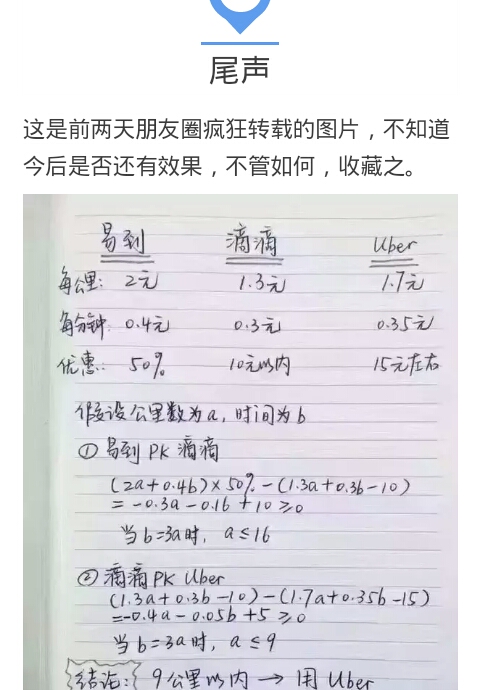 尾声
这是前两天朋友圈疯狂转载的图片，不知道
今后是否还有效果，不管如何，收藏之。
易到 滴滴 Uber
每公里: 2元 1.3元 1.7元
每分钟: 0.4元 0.3元 0.35元
优惠: 50% 10元以内 15元左右
假设公里数为a, 时间为b
① 易到 PK 滴滴
(2a+0.4b)×50%-(1.3a+0.3b-10)
=-0.3a-0.1b+10≥0
当b=3a时, a≤16
② 滴滴 PK Uber
(1.3a+0.3b-10)-(1.7a+0.35b-15)
=-0.4a-0.05b+5≥0
当b=3a时, a≤9
结论: 9公里以内→用Uber